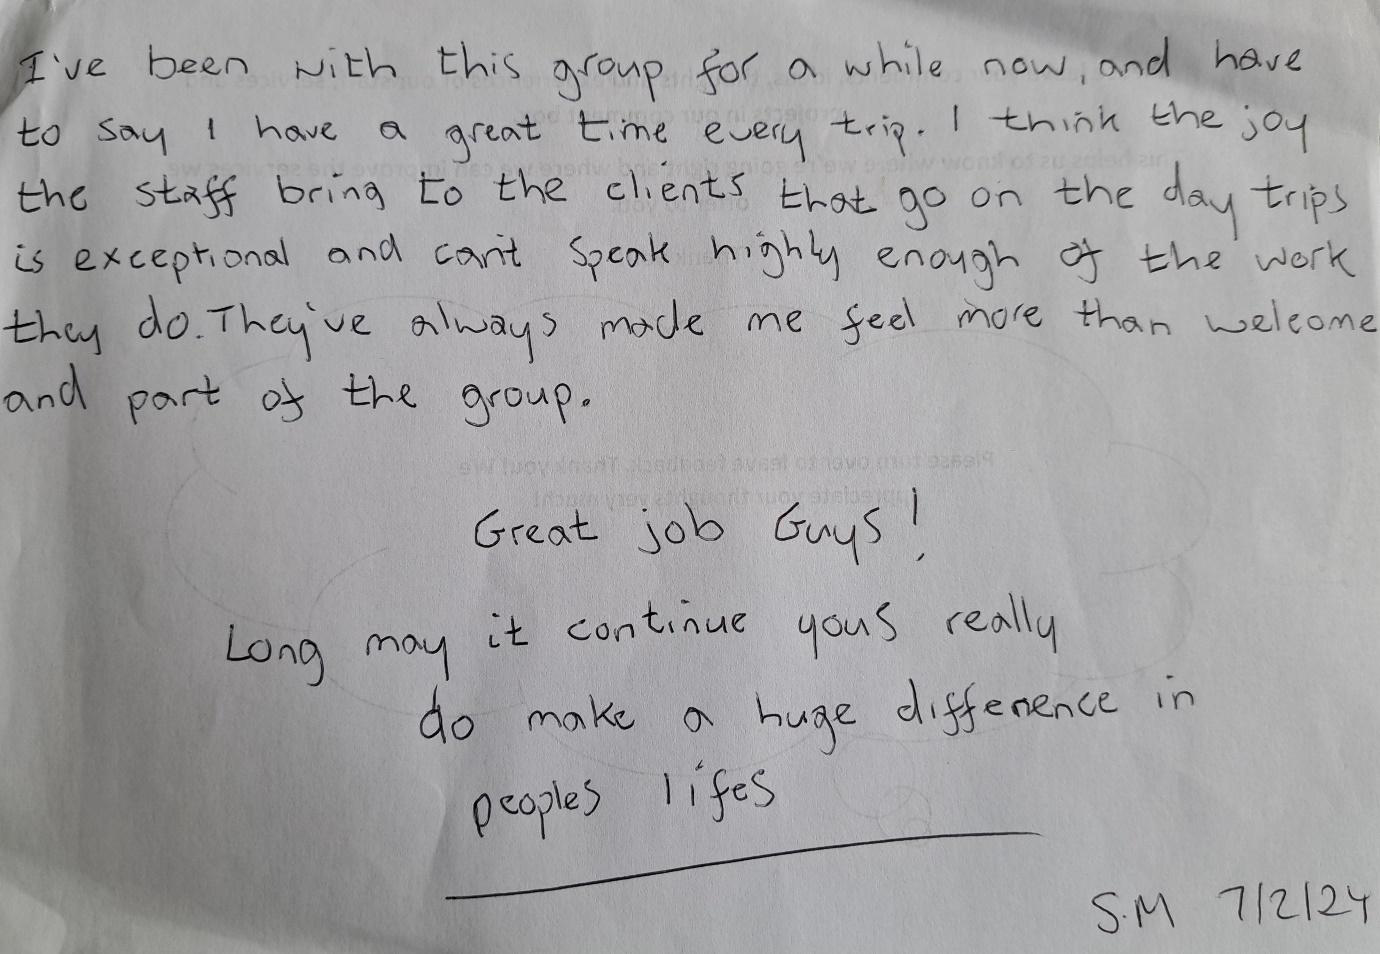 I've been with this group for a while now, and have
to say I have a great time every trip. I think the joy
the staff bring to the clients that go on the day trips
is exceptional and can't speak highly enough of the work
they do. They've always made me feel more than welcome
and part of the group.
Great job Guys!
Long may it continue yous really
do make a huge difference in
peoples lifes
S.M 7/2/24